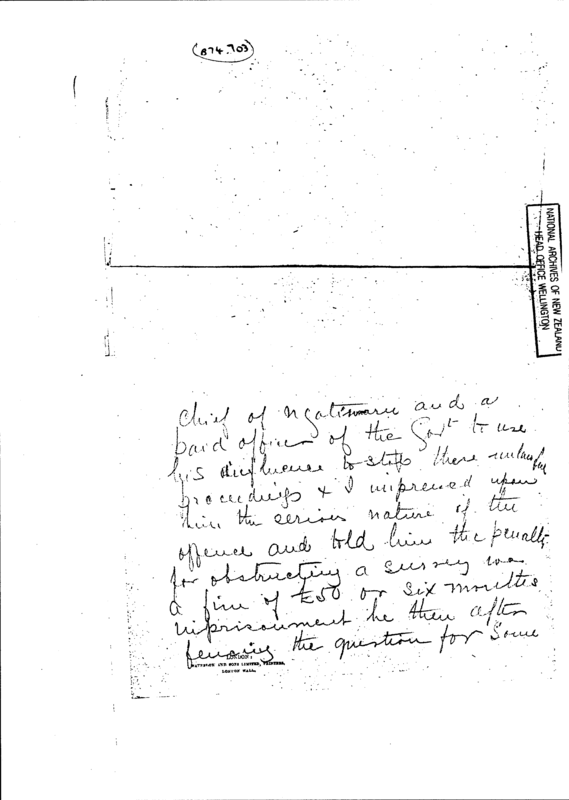 (874.703)
NATIONAL ARCHIVES OF NEW ZEALAND
HEAD OFFICE WELLINGTON
chief of Ngatimaru and a
paid officer of the Govt to use
his influence to stop these unlawful
proceedings & I impressed upon
him the serious nature of the
offence and told him the penalty
for obstructing a survey was
a fine of £50 or six months
imprisonment he then after
fencing the question for some
LONDON:
AND SONS LIMITED, PRINTERS,
LONDON WALL.